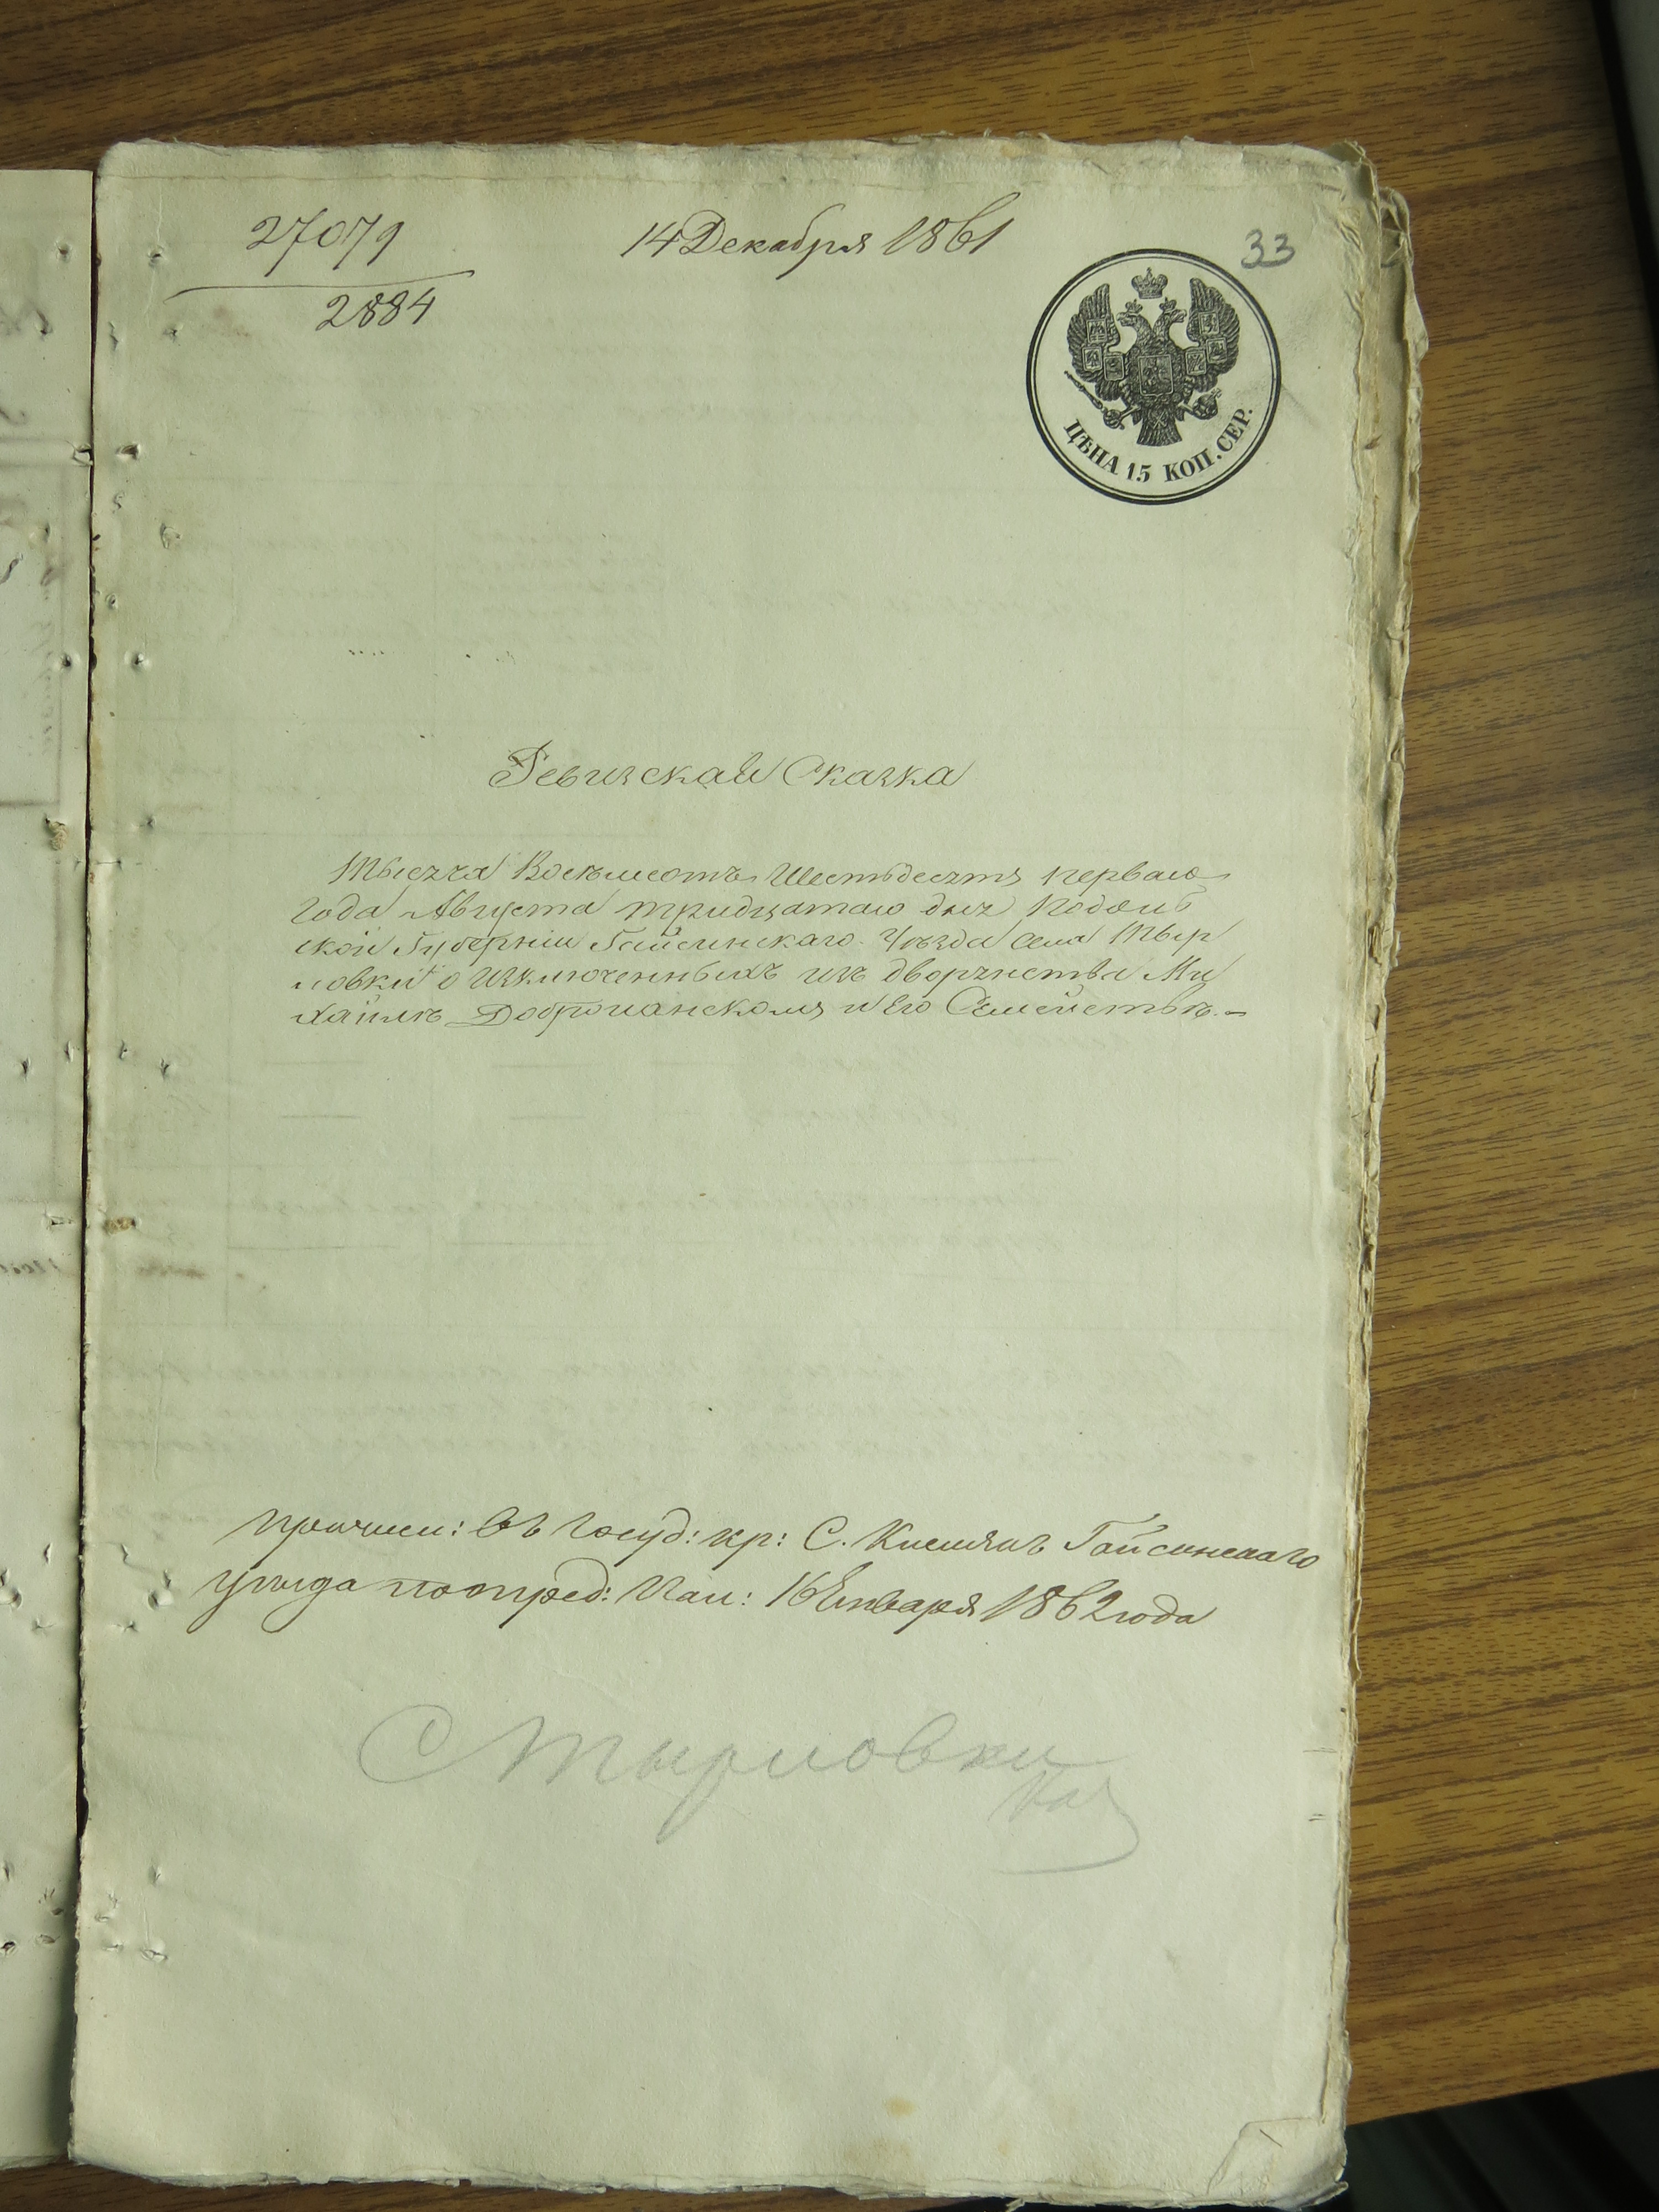 27079
2884
14 Декабря 1861
33
ЦѢНА 15 КОП. СЕР.
Ревизская Сказка
Тысяча Восемьсотъ Шестьдесятъ перваго
года Августа тридцатаго дня Подоль
ской Губерніи Гайсинскаго Уѣзда села Тыр
ловки о изключенныхъ изъ дворянства Ми
хайлѣ Доброчанскомъ и Его Семействѣ. –
причисл: въ госуд: кр: С. Кисляка Гайсинскаго
уѣзда по опред: Пал: 16 Января 1862 года
С Тырловки